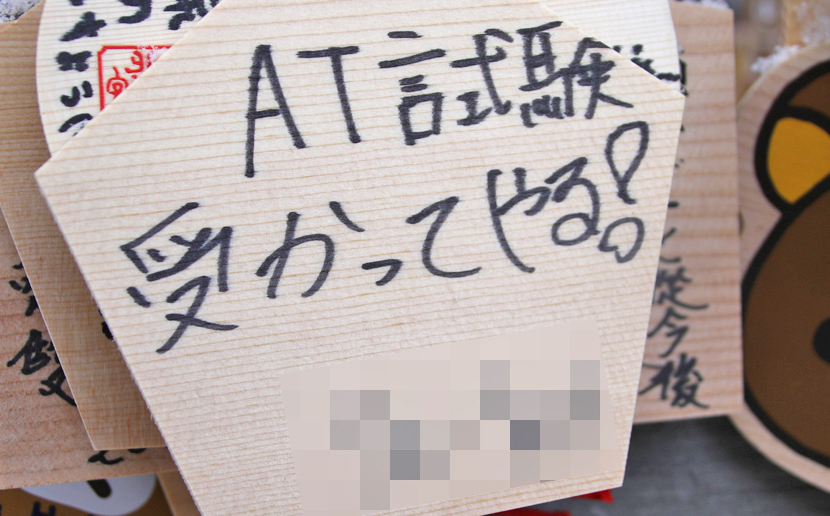 AT試験
受かってやる!
今後